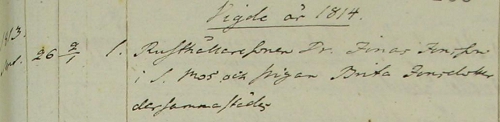 Vigde år 1814.
1813.
26 2/1 1. Rusthållaresonen Dr. Jonas Jonsson
i S. Mos och pigan Brita Jonsdotter
dersammastädes